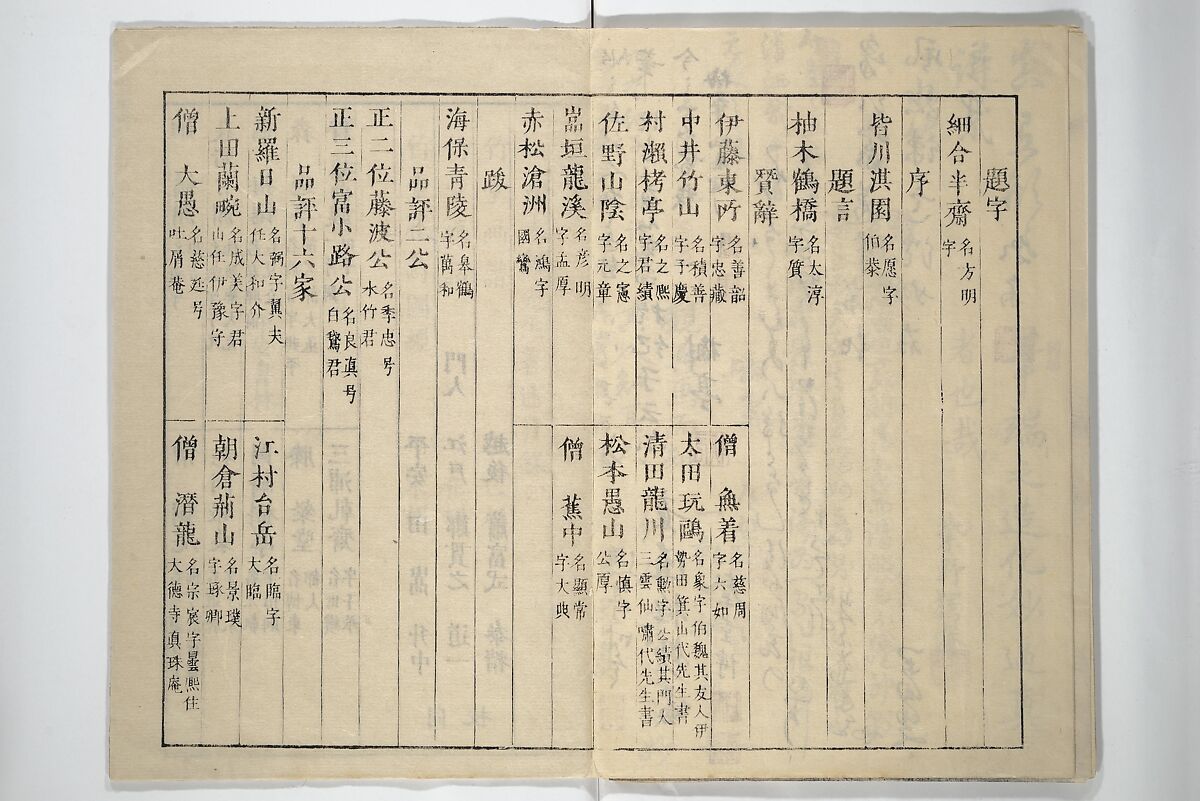 題字
細合半齋 名方明 字
序
皆川淇園 名愿字 伯恭
題言
柚木鶴橋 名太淳 字質
賛辭
伊藤東所 名善韶 字忠藏
僧 無着 名慈周 字六如
中井竹山 名積善 字子慶
太田玩鷗 名象字伯魏其友人伊 勢田箕山代先生書
村瀬栲亭 名之熙 字君績
清田龍川 名勲字公績其門人 三雲仙嘯代先生書
佐野山陰 名之憲 字元章
松本愚山 名慎字 公厚
嵓垣龍溪 名彦明 字孟厚
僧 蕉中 名顯常 字大典
赤松滄洲 名鴻字 國鸞
跋
海保青陵 名皐鶴 字萬和
品評二公
正二位藤波公 名季忠号 水竹君
正三位富小路公 名良直号 白鷺君
品評十六家
新羅日山 名弼字翼夫 任大和介
江村台岳 名臨字 大臨
上田蘭畹 名成美字君 山任伊豫守
朝倉荊山 名景璞 字琢卿
僧 大愚 名慈延号 吐屑菴
僧 潛龍 名宗宸字曇熙住 大德寺真珠庵